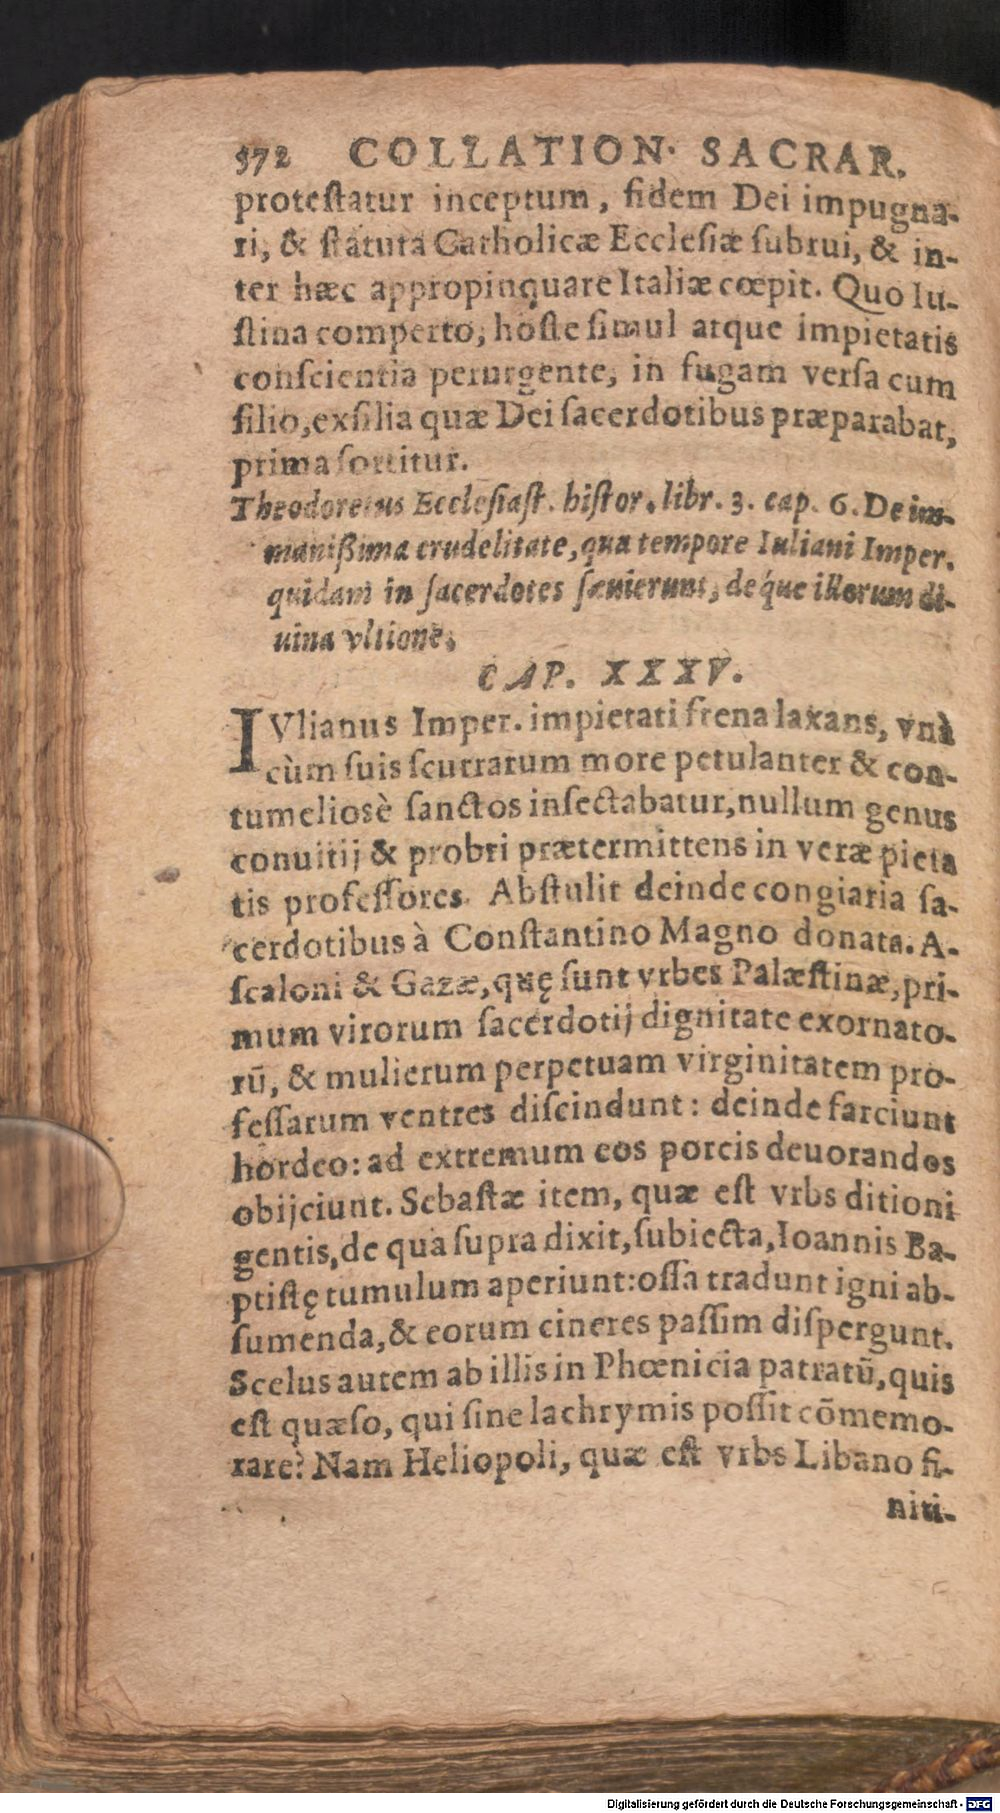 572 COLLATION· SACRAR.
proteſtatur inceptum, fidem Dei impugna-
ri, & ſtatuta Catholicæ Eccleſiæ ſubrui, & in-
ter hæc appropinquare Italiæ cœpit. Quo Iu-
ſtina comperto, hoſte ſimul atque impietatis
conſcientia perurgente, in fugam verſa cum
filio, exſilia quæ Dei ſacerdotibus præparabat,
prima ſortitur.
Theodoretus Eccleſiaſt. hiſtor. libr. 3. cap. 6. De im-
manißima crudelitate, qua tempore Iuliani Imper.
quidam in ſacerdotes ſæuierunt, deq́ue illorum di-
uina vltione.
CAP. XXXV.
IVlianus Imper. impietati frena laxans, vnà
cùm ſuis ſcurrarum more petulanter & con-
tumelioſè ſanctos inſectabatur, nullum genus
conuitij & probri prætermittens in veræ pieta
tis profeſſores. Abſtulit deinde congiaria ſa-
cerdotibus à Conſtantino Magno donata. A-
ſcaloni & Gazæ, quę ſunt vrbes Palæſtinæ, pri-
mum virorum ſacerdotij dignitate exornato-
rū, & mulierum perpetuam virginitatem pro-
feſſarum ventres diſcindunt: deinde farciunt
hordeo: ad extremum eos porcis deuorandos
obijciunt. Sebaſtæ item, quæ eſt vrbs ditioni
gentis, de qua ſupra dixit, ſubiecta, Ioannis Ba-
ptiſtę tumulum aperiunt: oſſa tradunt igni ab-
ſumenda, & eorum cineres paſſim diſpergunt.
Scelus autem ab illis in Phœnicia patratū, quis
eſt quæſo, qui ſine lachrymis poſſit cōmemo-
rare? Nam Heliopoli, quæ eſt vrbs Libano fi-
niti-
Digitalisierung gefördert durch die Deutsche Forschungsgemeinschaft - DFG